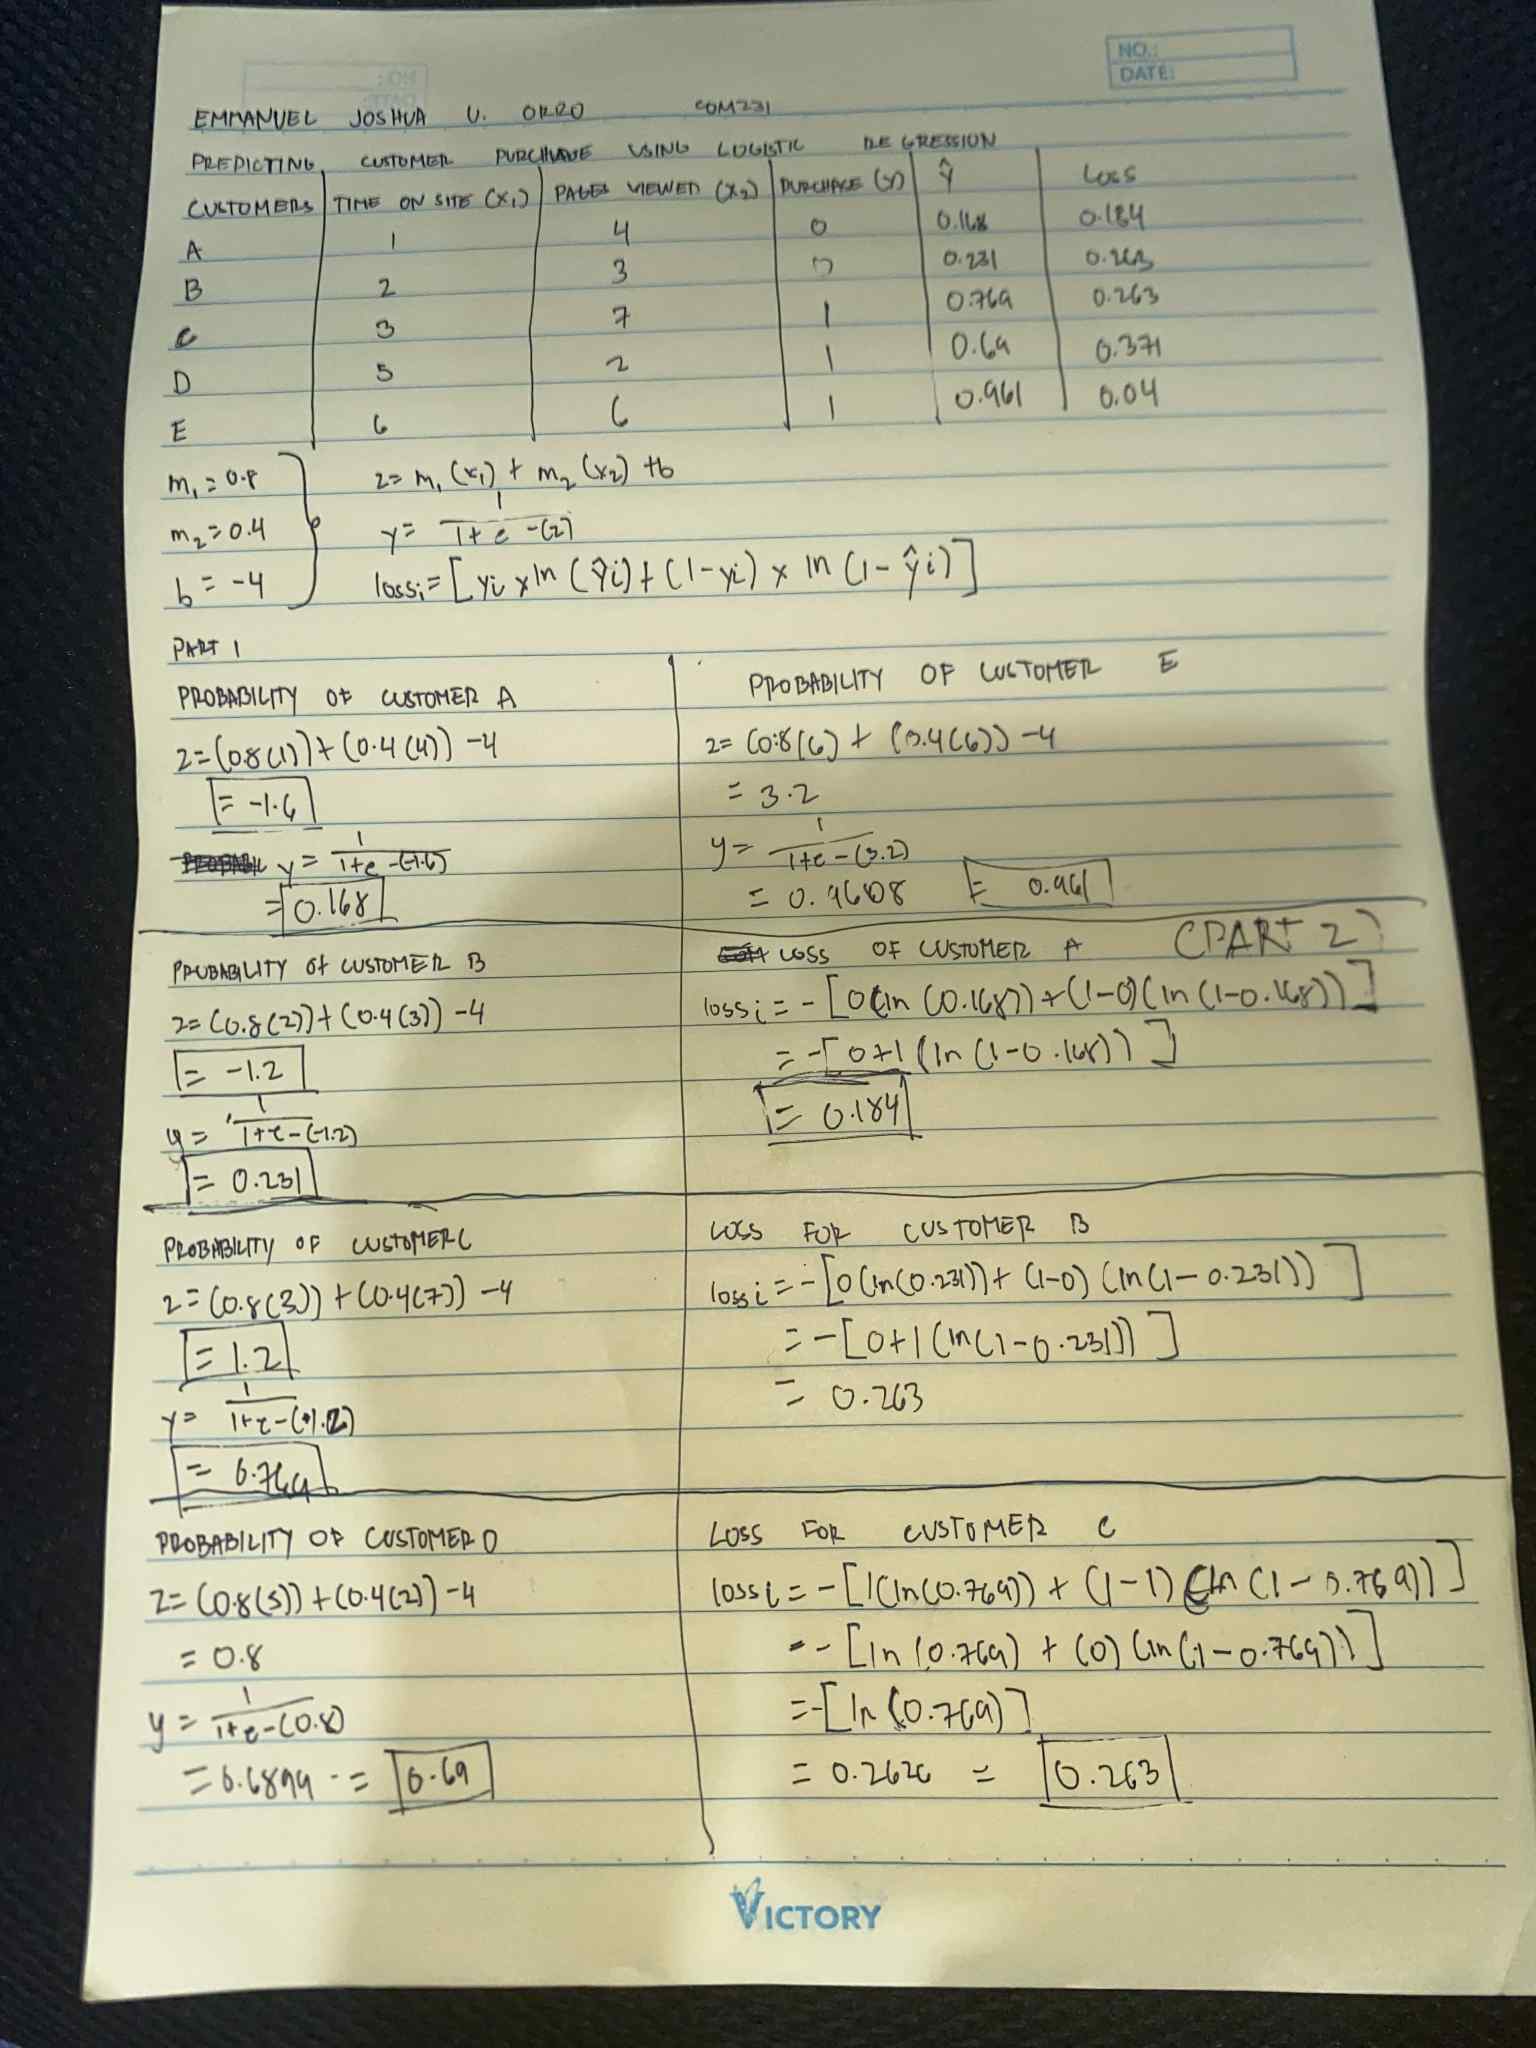 NO.:
DATE:
EMMANUEL JOSHUA U. ORRO COM231
PREDICTING CUSTOMER PURCHASE USING LOGISTIC REGRESSION
CUSTOMERS TIME ON SITE (X₁) PAGES VIEWED (X₂) PURCHASE (Y) Ŷ LOSS
A 1 4 0 0.168 0.184
B 2 3 0 0.231 0.263
C 3 7 1 0.769 0.263
D 5 2 1 0.69 0.371
E 6 6 1 0.961 0.04
m₁ = 0.8 z = m₁ (x₁) + m₂ (x₂) + b
m₂ = 0.4 y = 1 / 1 + e -(z)
b = -4 lossᵢ = [yi x ln (ŷi) + (1-yi) x ln (1-ŷi)]
PART 1
PROBABILITY OF CUSTOMER A
z = (0.8(1)) + (0.4(4)) -4
= -1.6
y = 1 / 1+e -(-1.6)
= 0.168
PROBABILITY OF CUSTOMER B
z = (0.8(2)) + (0.4(3)) -4
= -1.2
y = 1 / 1+e -(-1.2)
= 0.231
PROBABILITY OF CUSTOMER C
z = (0.8(3)) + (0.4(7)) -4
= 1.2
y = 1 / 1+e -(1.2)
= 0.769
PROBABILITY OF CUSTOMER D
z = (0.8(5)) + (0.4(2)) -4
= 0.8
y = 1 / 1+e -(0.8)
= 0.6899 = 0.69
PROBABILITY OF CUSTOMER E
z = (0.8(6) + (0.4(6)) -4
= 3.2
y = 1 / 1+e -(3.2)
= 0.9608 = 0.961
(PART 2)
LOSS OF CUSTOMER A
lossi = -[0(ln (0.168)) + (1-0)(ln (1-0.168))]
= -[0+1 (ln (1-0.168))]
= 0.184
LOSS FOR CUSTOMER B
lossi = -[0(ln(0.231)) + (1-0) (ln(1-0.231))]
= -[0+1 (ln(1-0.231))]
= 0.263
LOSS FOR CUSTOMER C
lossi = -[1(ln(0.769)) + (1-1) (ln (1-0.769))]
= -[ln (0.769) + (0) (ln(1-0.769))]
= -[ln (0.769)]
= 0.2626 = 0.263
VICTORY